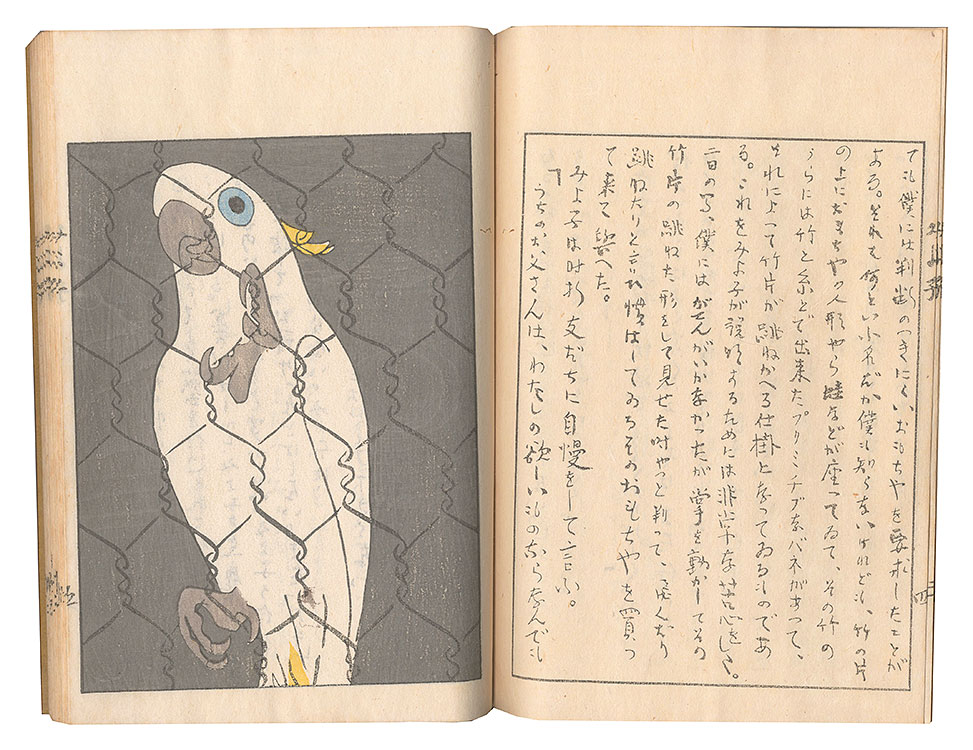 ても僕には判断のつきにくいおもちやを要求したことが
ある。それは何といふ名だか僕も知らないけれども、竹の片
の上におもちやの人形やら蛙などが座つてゐて、その竹の
うらには竹と糸とで出来たプリミチブなバネがあつて、
それによって竹片が跳ねかへる仕掛となってゐるものであ
る。これをみよ子が説明するためには非常な苦心をした。
僕にはがてんがいかなかつたが掌を動かしてその
竹片の跳ねた形をして見せた時やつと判って、飛んだり
跳ねたりと言ひ慣はしてゐるそのおもちやを買つ
て来て與へた。
みよ子は時折友だちに自慢をして言ふ。
「うちのお父さんは、わたしの欲しいものならなんでも